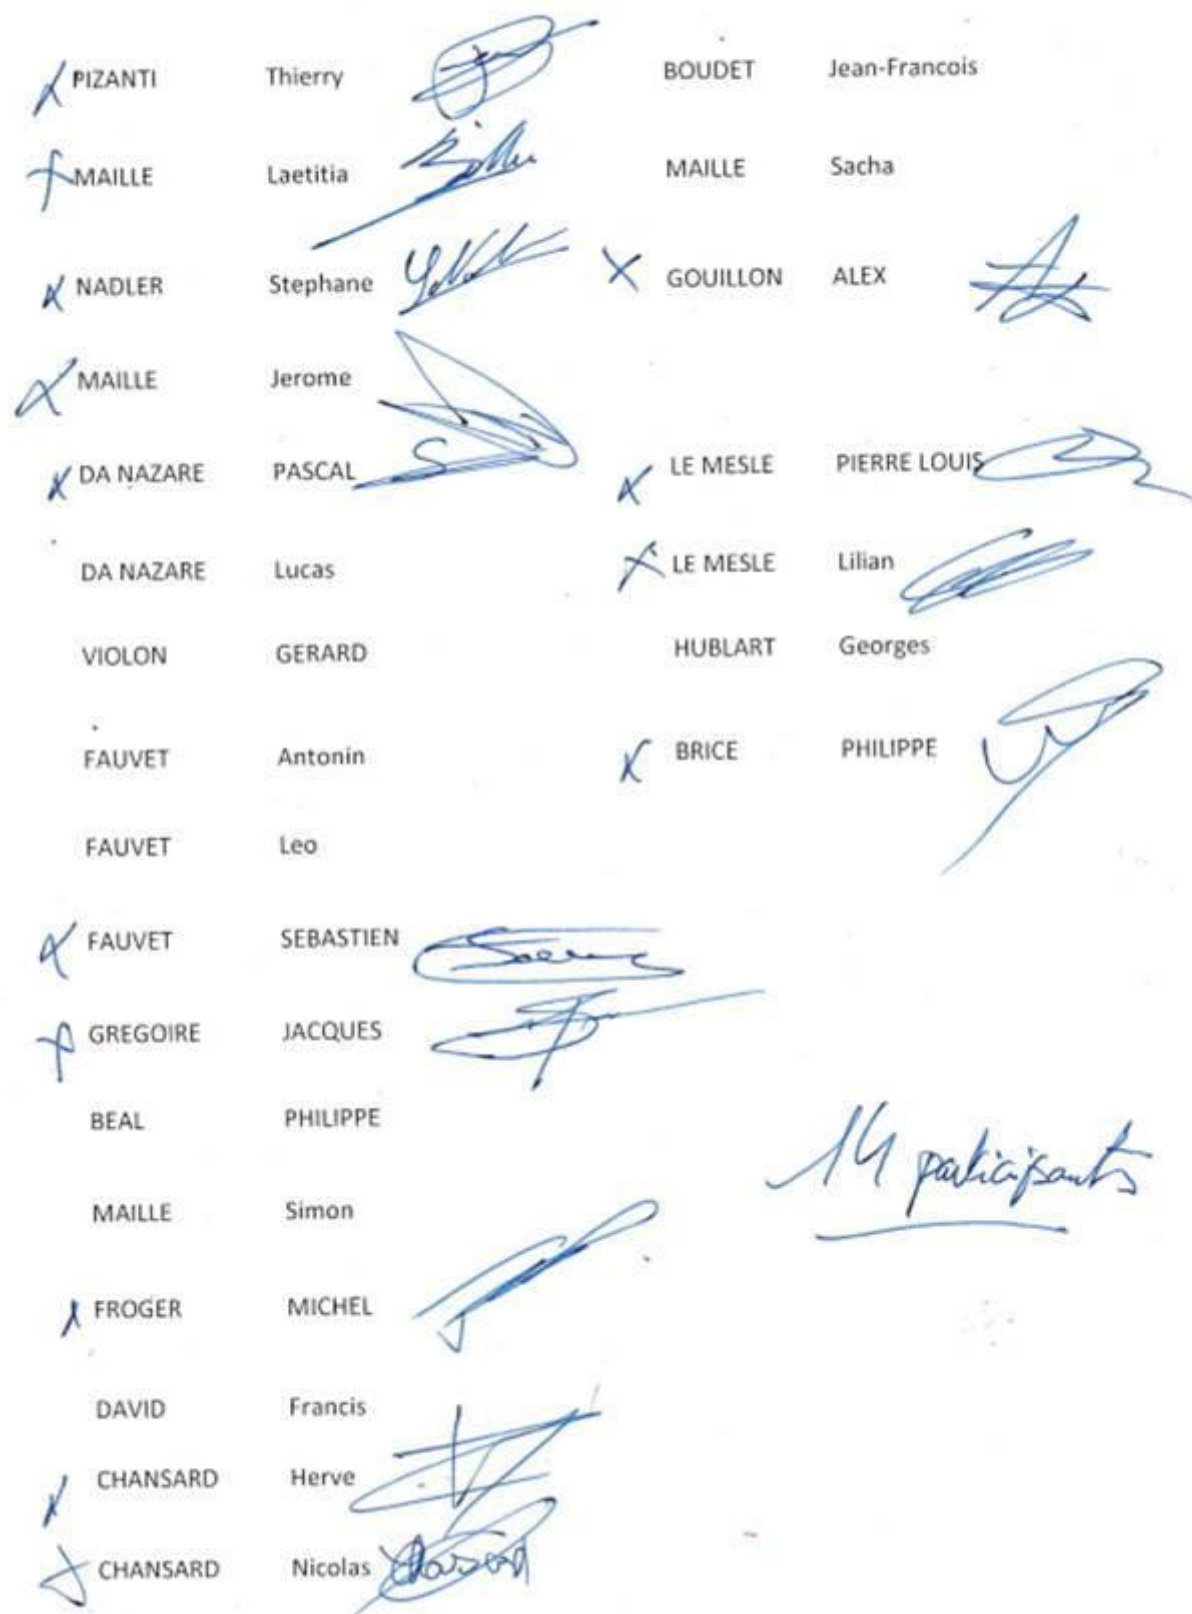 PIZANTI Thierry
MAILLE Laetitia
NADLER Stephane
MAILLE Jerome
DA NAZARE PASCAL
DA NAZARE Lucas
VIOLON GERARD
FAUVET Antonin
FAUVET Leo
FAUVET SEBASTIEN
GREGOIRE JACQUES
BEAL PHILIPPE
MAILLE Simon
FROGER MICHEL
DAVID Francis
CHANSARD Herve
CHANSARD Nicolas
BOUDET Jean-Francois
MAILLE Sacha
GOUILLON ALEX
LE MESLE PIERRE LOUIS
LE MESLE Lilian
HUBLART Georges
BRICE PHILIPPE
14 participants